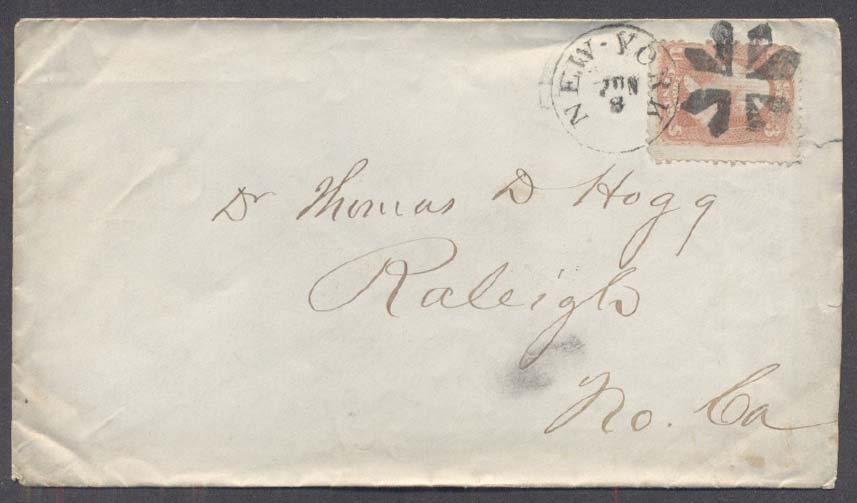 NEW-YORK
JUN
8
3 3
Dr Thomas D Hogg
Raleigh
No. Ca